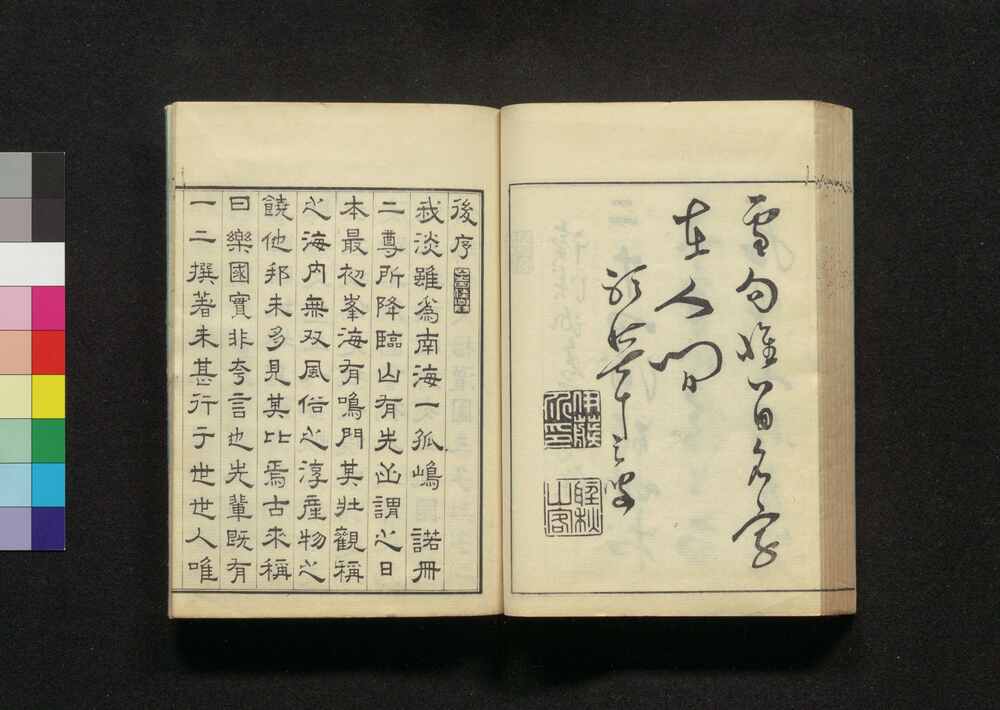 句惟留名字
在人間
後序
我淡雖爲南海一孤嶋　諾冊
二尊所降臨山有先山謂之日
本最初峯海有鳴門其壯觀稱
之海內無双風俗之淳産物之
饒他邦未多見其比焉古來稱
曰樂國實非夸言也先輩既有
一二撰著未甚行于世世人唯